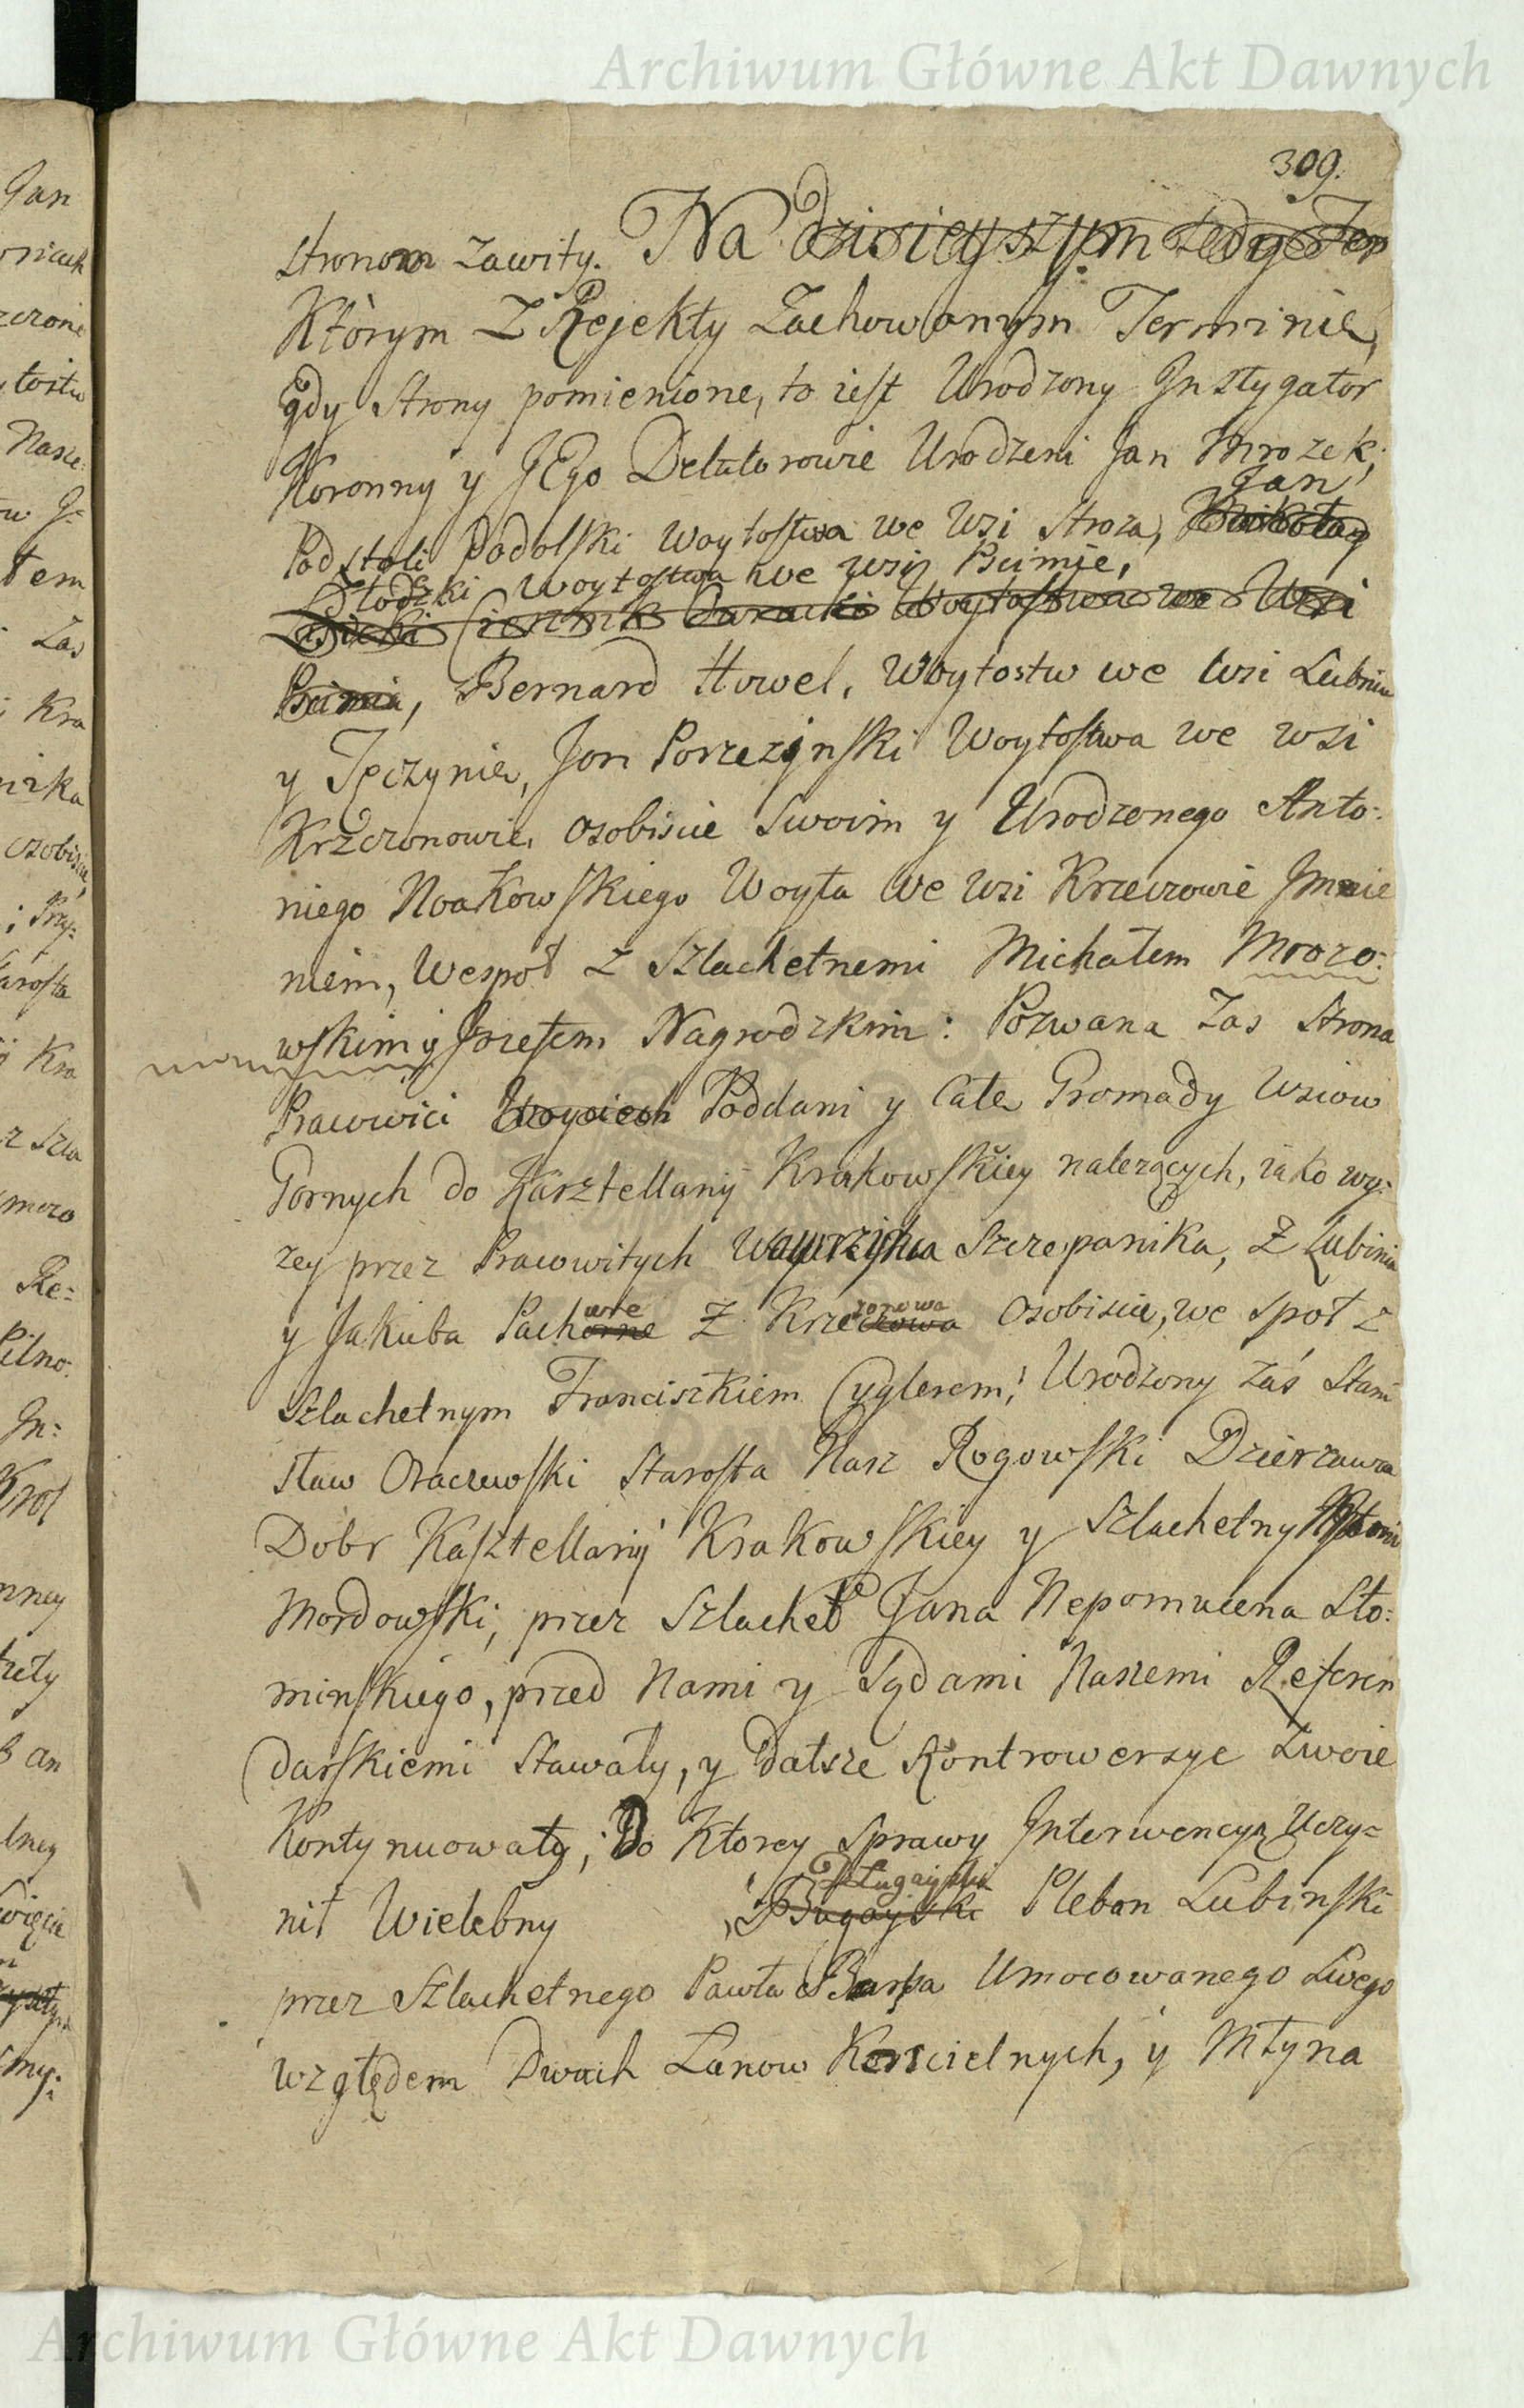 Archiwum Główne Akt Dawnych
309.
stronom zawity. Na dzisieyszym tedy Ter
Ktòrym Z Rejekty Zachowanym Terminie,
gdy Strony pomienione, to iest Urodzony Instygator
Koronny y JEgo Delatorowie Urodzeni Jan Mrozek,
Jan
Podstoli Podolski Woytostwa we Wsi Stroza, Mikołay
Woytostwa we wsij Pcimie,
Czesznik Woytostwa we Wsi
Pcimia, Bernard Huwel, Woytostw we Wsi Lubniu
y Tęczynie, Jan Porzezynski Woytostwa we wsi
Krzczonowie, osobiscie Swoim y Urodzonego Anto:
niego Noakowskiego Woyta We Wsi Krzeczowie Jmie
niem, Wespoł z Szlachetnemi Michałem Mrozo:
wskim y Jozefem Nagrodzkim: Pozwana Zas Strona
Pracowici Woyciech Poddani y Całe Gromady Wsiow
Gornych do Kasztellanij Krakowskiey należących, iako wy:
zey przez Pracowitych Wawrzyńca Szczepanika, Z Lubinia
y Jakuba Pachorne Z Krzeczowa Osobiscie, we społ z
Szlachetnym Franciszkiem Cyglerem; Urodzony zaś Stani
sław Oraczewski Starosta Nasz Rogowski Dzierzawca
Dobr Kasztellanij Krakowskiey y Szlachetny Antoni
Mordowski, przez Szlachet Jana Nepomucena Sło:
minskiego, przed Nami y Sądami Naszemi Referen
darskiemi Stawały, y Dalsze Kontrowersye Swoie
Kontynuowały; Do Ktorey Sprawy Interwencyą Uczy=
Długayski
nił Wielebny Bugayski Pleban Lubinski
przez Szlachetnego Pawła Barka Umocowanego Swego
względem Dwoch Łanow Koscielnych, y Młyna
Archiwum Główne Akt Dawnych